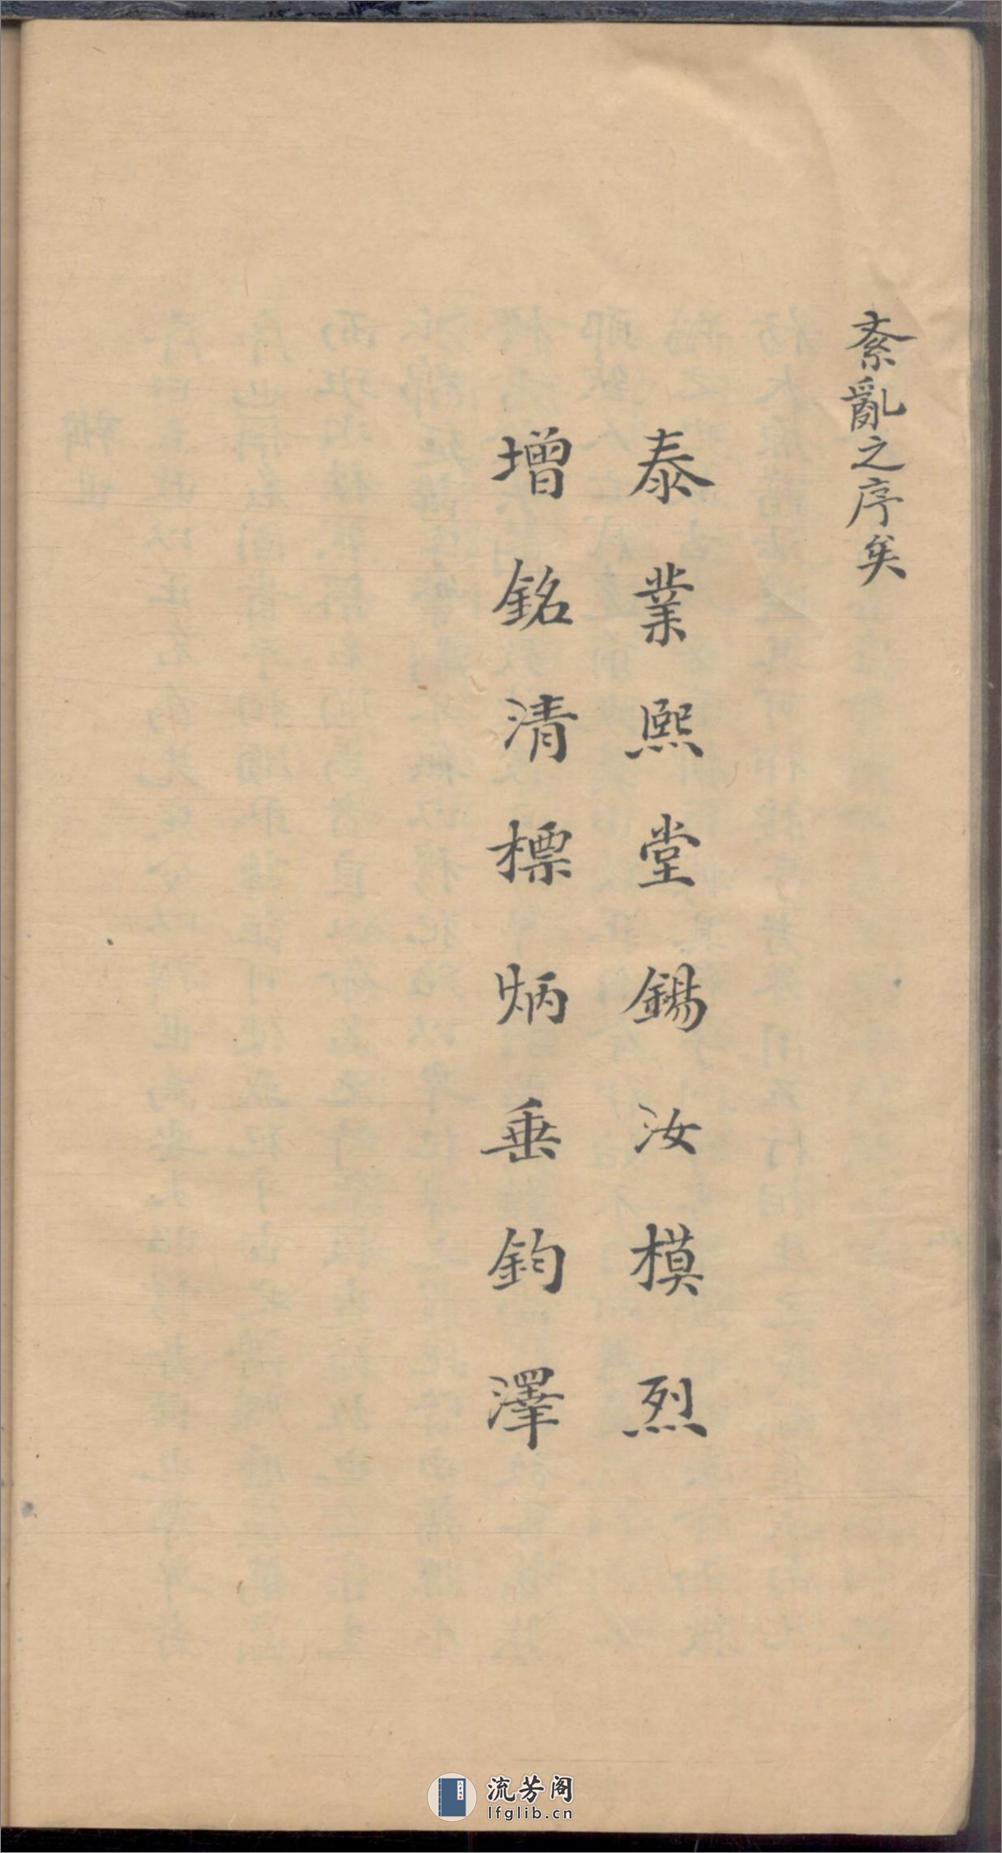 紊亂之序矣
泰業熙堂錫汝模烈
增銘清標炳垂鈞澤
流芳阁
lfglib.cn